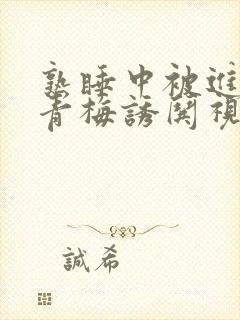 熟睡中被進
青梅誘関視
誠希